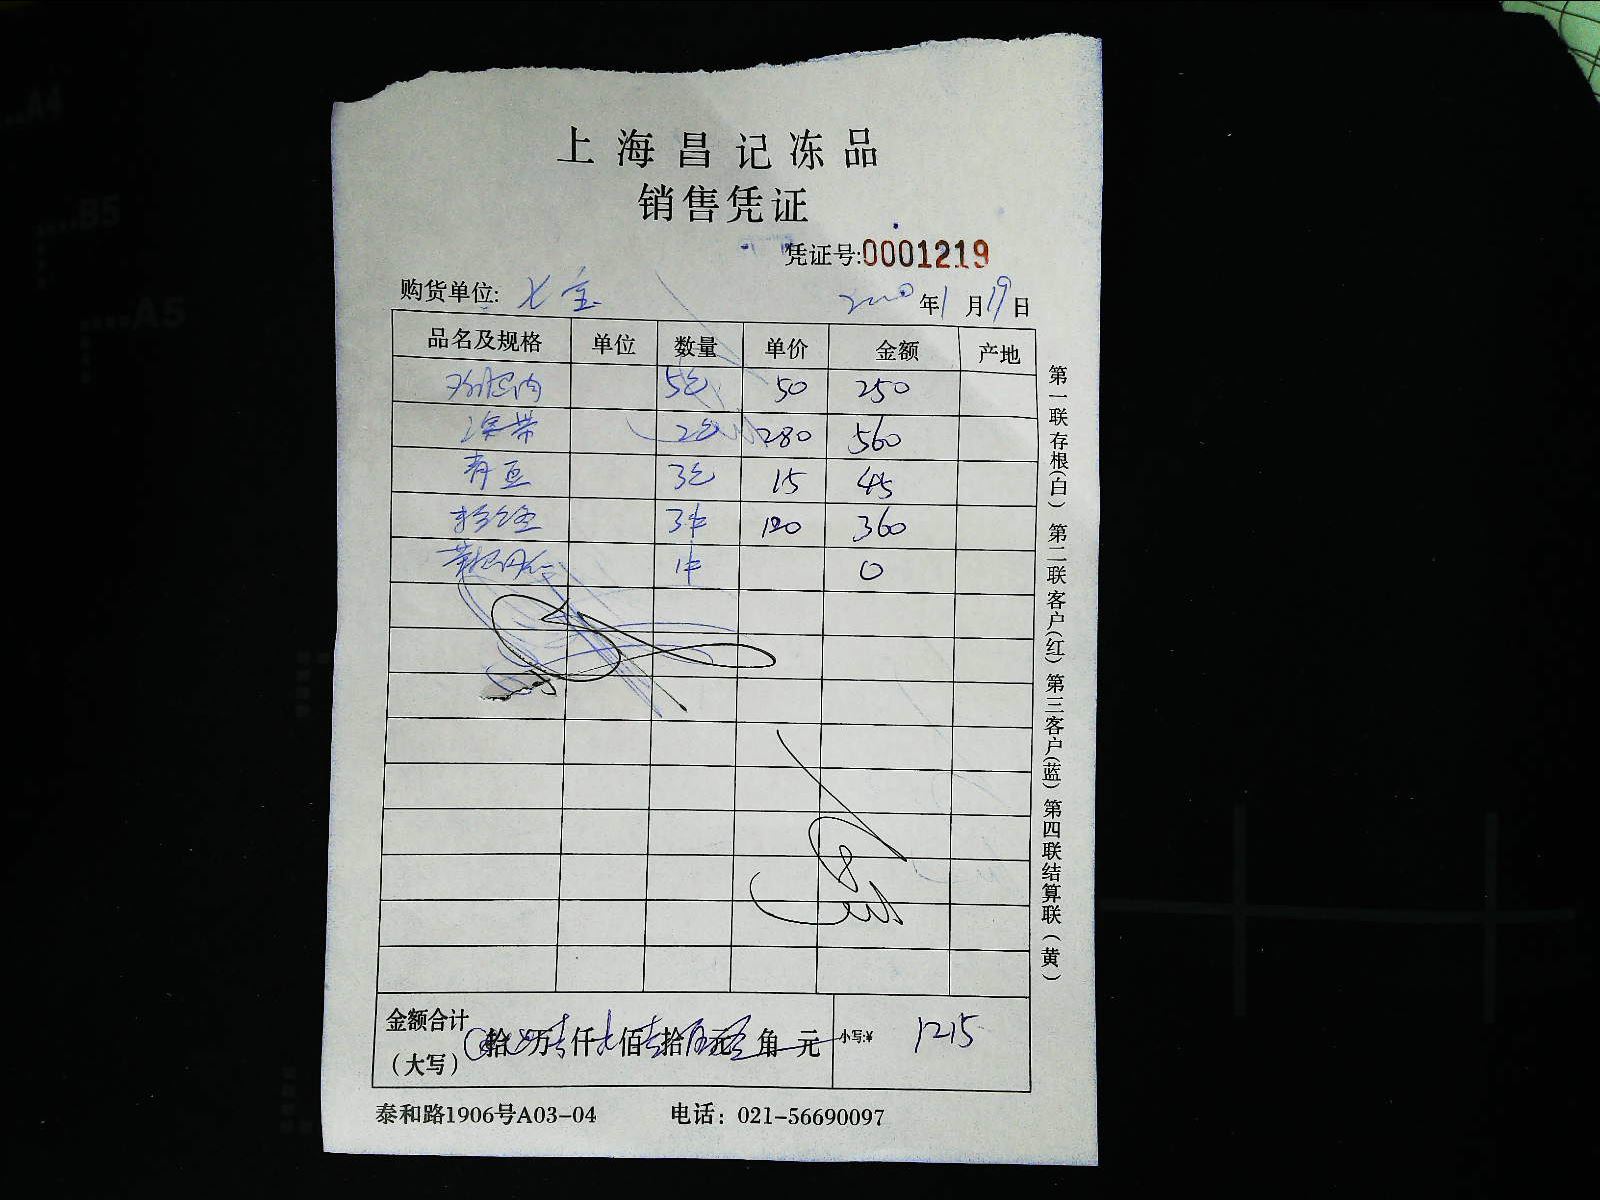 上海昌记冻品
销售凭证
凭证号:0001219
购货单位: 七宝 年1月19日
品名及规格 单位 数量 单价 金额 产地
5包 50 250
2包 280 560
青豆 3包 15 45
3件 120 360
1件 0
金额合计（大写） 拾 万 仟 佰 拾 元 角 元 小写:¥ 1215
泰和路1906号A03-04 电话：021-56690097
第一联存根(白) 第二联客户(红) 第三客户(蓝) 第四联结算联(黄)
A4
B5
A5